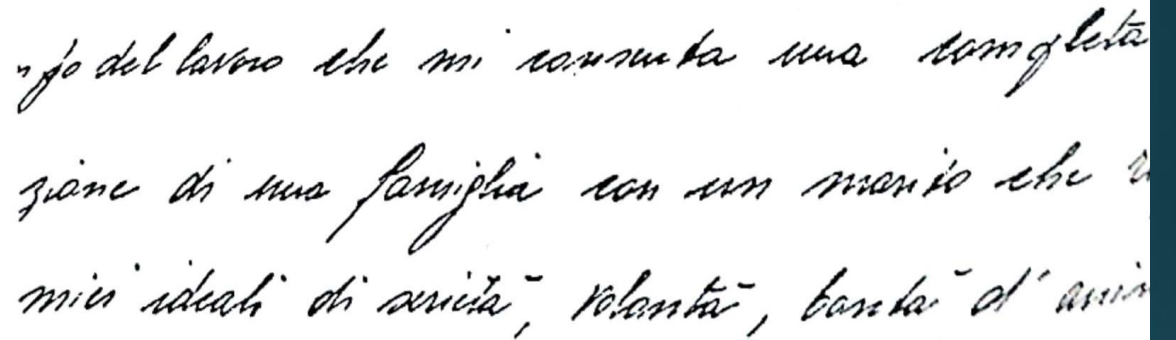 del lavoro che mi consenta una completa
zione di una famiglia con un marito che
miei ideali di serietà, volontà, bontà d'